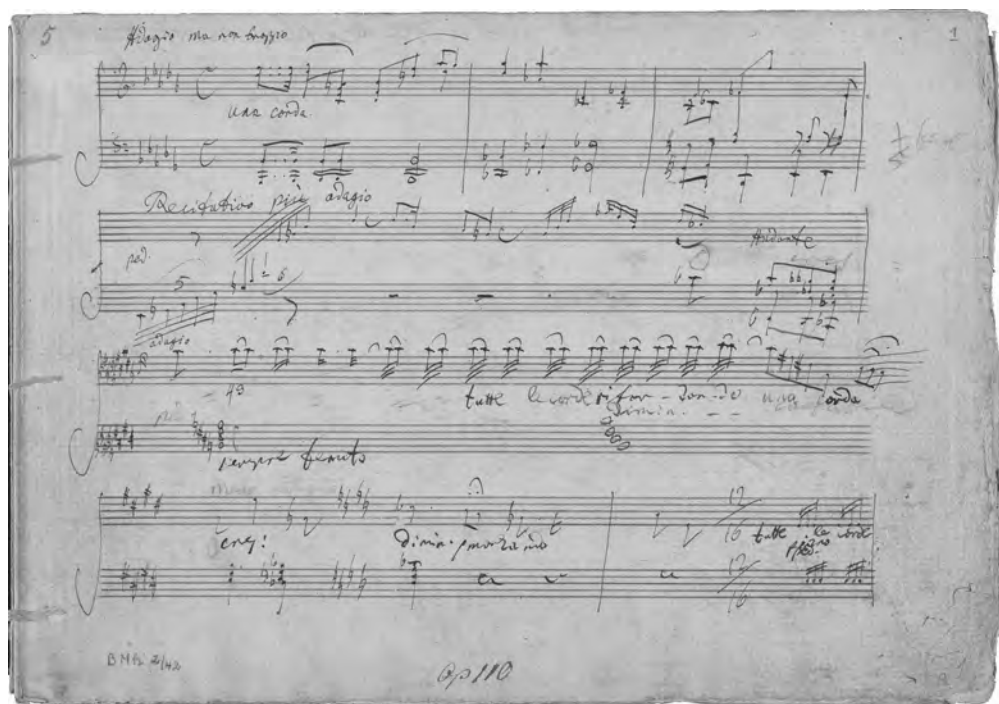 5 Adagio ma non troppo 1
una corda
Recitativo più adagio
Andante
ped.
5 6
adagio
43
tutte le corde ritor-dan-do una corda
dimin. - -
sempre tenuto
cresc:
dimin. smorzando
12
16
tutte le corde
12
16
BMh 2/42
Op 110